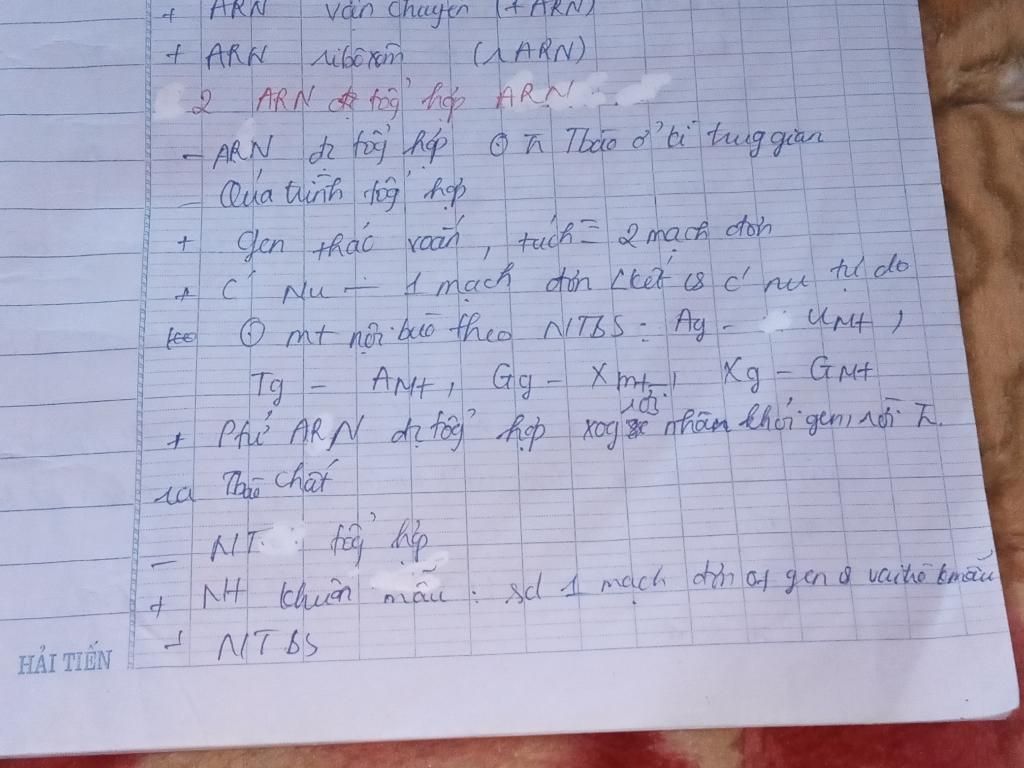 + ARN vận chuyển (tARN)
+ ARN ribôxôm (rARN)
2 ARN đc tổg' hợp ARN
- ARN đc tổg' hợp Thão ở tì trug gian
- Qúa trình tổg' hợp
+ gen tháo xoắn, tách = 2 mạch đơn
+ C' Nu - 1 mạch đơn Lkết vs c' nu tự do
mt nội bào theo NTBS: Ag - UMt,
Tg - AMt, Gg - Xmt, Xg - GMt
rời
+ Phtử ARN đc tổg' hợp xog nhân khỏi gen, rời
ra Tbào chất
- NT tổg' hợp
+ NH khuôn mẫu: sd 1 mạch đơn of gen vai trò kmẫu
+ NTBS
HẢI TIẾN